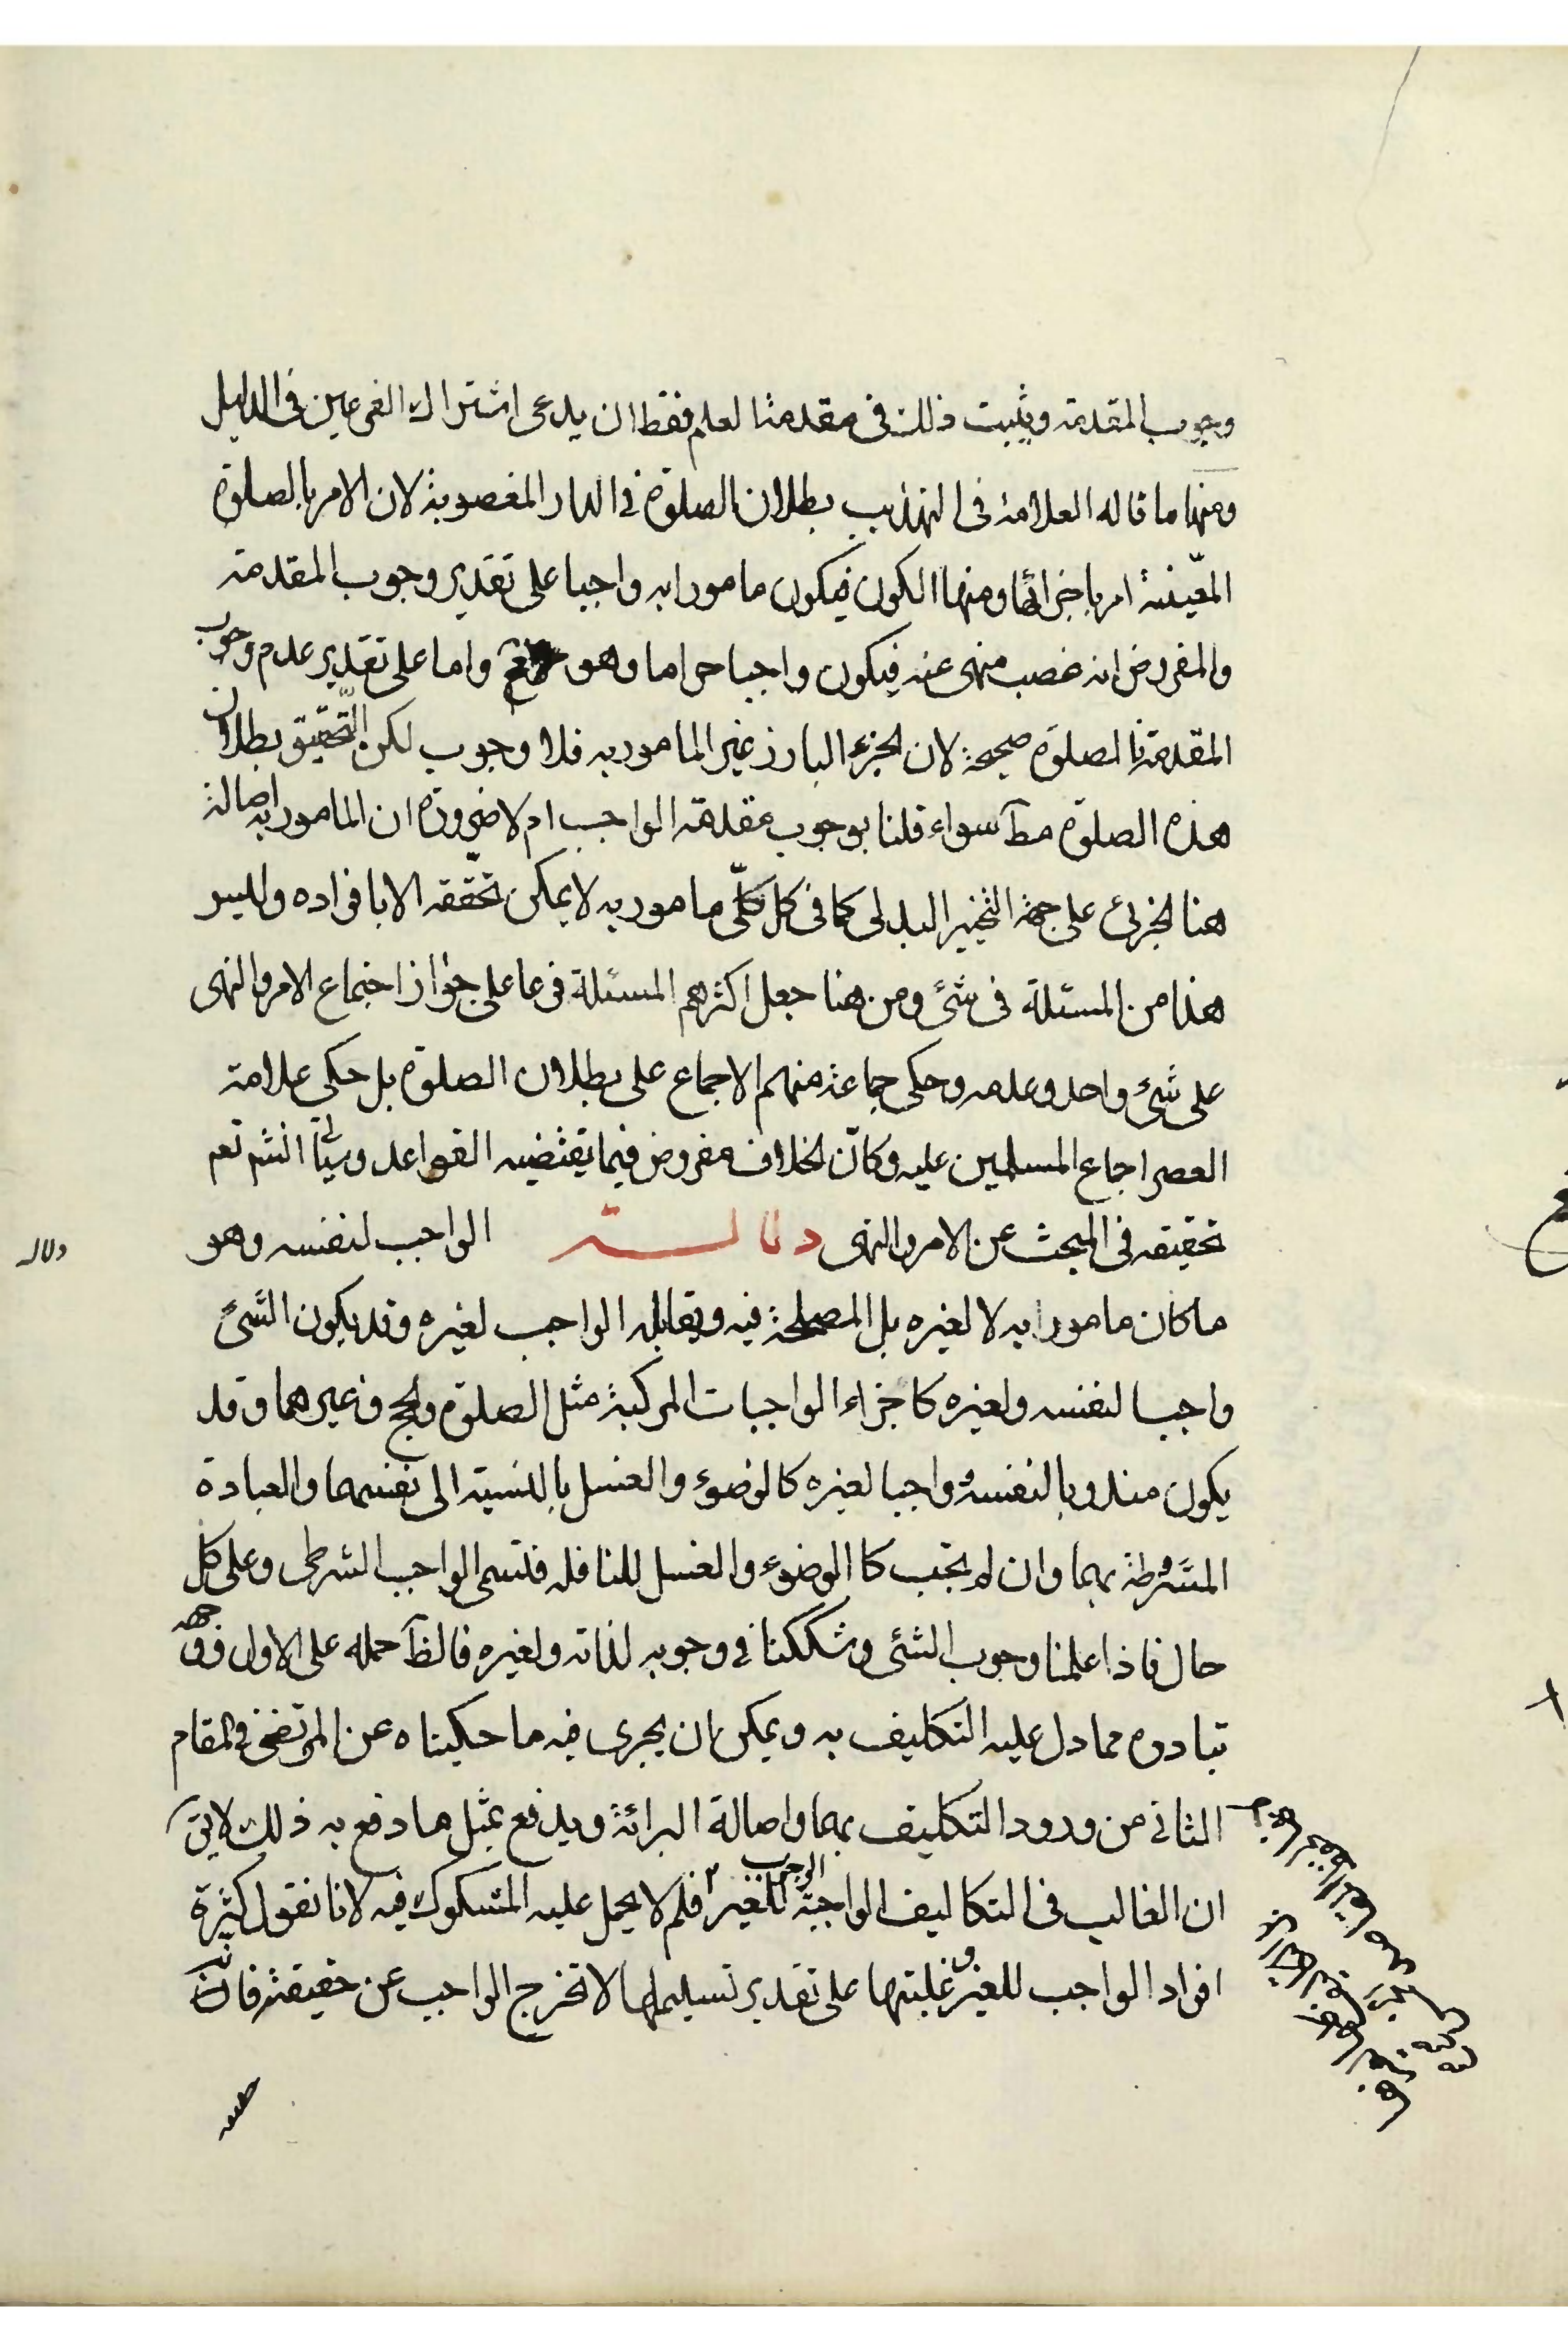 وجوب المقدمة ويثبت ذلك في مقدمة العلم فقط ان يدعى اشتراك الفرعين في الدليل
ومنها ما قاله العلامة في التهذيب بطلان الصلوة في الدار المغصوبة لان الامر بالصلوة
المعيّنة امر باجزائها ومنها الكون فيكون مامورا به واجبا على تقدير وجوب المقدمة
والمفروض انه غصب منهى عنه فيكون واجبا حراما وهو مح واما على تقدير عدم وجوب
المقدمة فالصلوة صحيحة لان الجزء البارز غير المامور به فلا وجوب لكن التحقيق بطلان
هذه الصلوة مطآ سواء قلنا بوجوب مقدمة الواجب ام لا ضرورة ان المامور به اصالة
هنا الجزئى على جهة التخيير البدلى كما فى كل كلّى مامور به لا يمكن تحققه الا بافراده وليس
هذا من المسئلة فى شئ ومن هنا جعل اكثرهم المسئلة فرعا على جواز اجتماع الامر والنهى
على شئ واحد وعدمه وحكى جماعة منهم الاجماع على بطلان الصلوة بل حكى علامة
العصر اجماع المسلمين عليه وكانّ الخلاف مفروض فيما يقتضيه القواعد وسيأتى انشم تعم
تحقيقه فى المبحث عن الامر والنهى دلالــــة الواجب لنفسه وهو
ما كان مامورا به لا لغيره بل المصلحة فيه ويقابله الواجب لغيره وقد يكون الشئ
واجبا لنفسه ولغيره كاجزاء الواجبات المركبة مثل الصلوة والحج وغيرهما وقد
يكون مندوبا لنفسه وواجبا لغيره كالوضوء والغسل بالنسبة الى نفسهما والعبادة
المشروطة بهما وان لم يجب كا الوضوء والغسل للنافلة فتسمى الواجب الشرطى وعلى كل
حال فاذا علمنا وجوب الشئى وشككنا في وجوبه لذاته ولغيره فالظآ حمله على الاول
تبادره مما دل عليه التكليف به ويمكن ان يجرى فيه ما حكيناه عن المرتضى في المقام
الثانى من ورود التكليف بهما واصالة البرائة ويدفع بمثل ما دفع به ذلك لا يق
ان الغالب فى التكاليف الواجبة الوجوب للغير فلم لا يحمل عليه المشكوك فيه لانا نقول كثرة
افراد الواجب للغير وغلبتها على تقدير تسليمها لا تخرج الواجب عن حقيقته فانّ